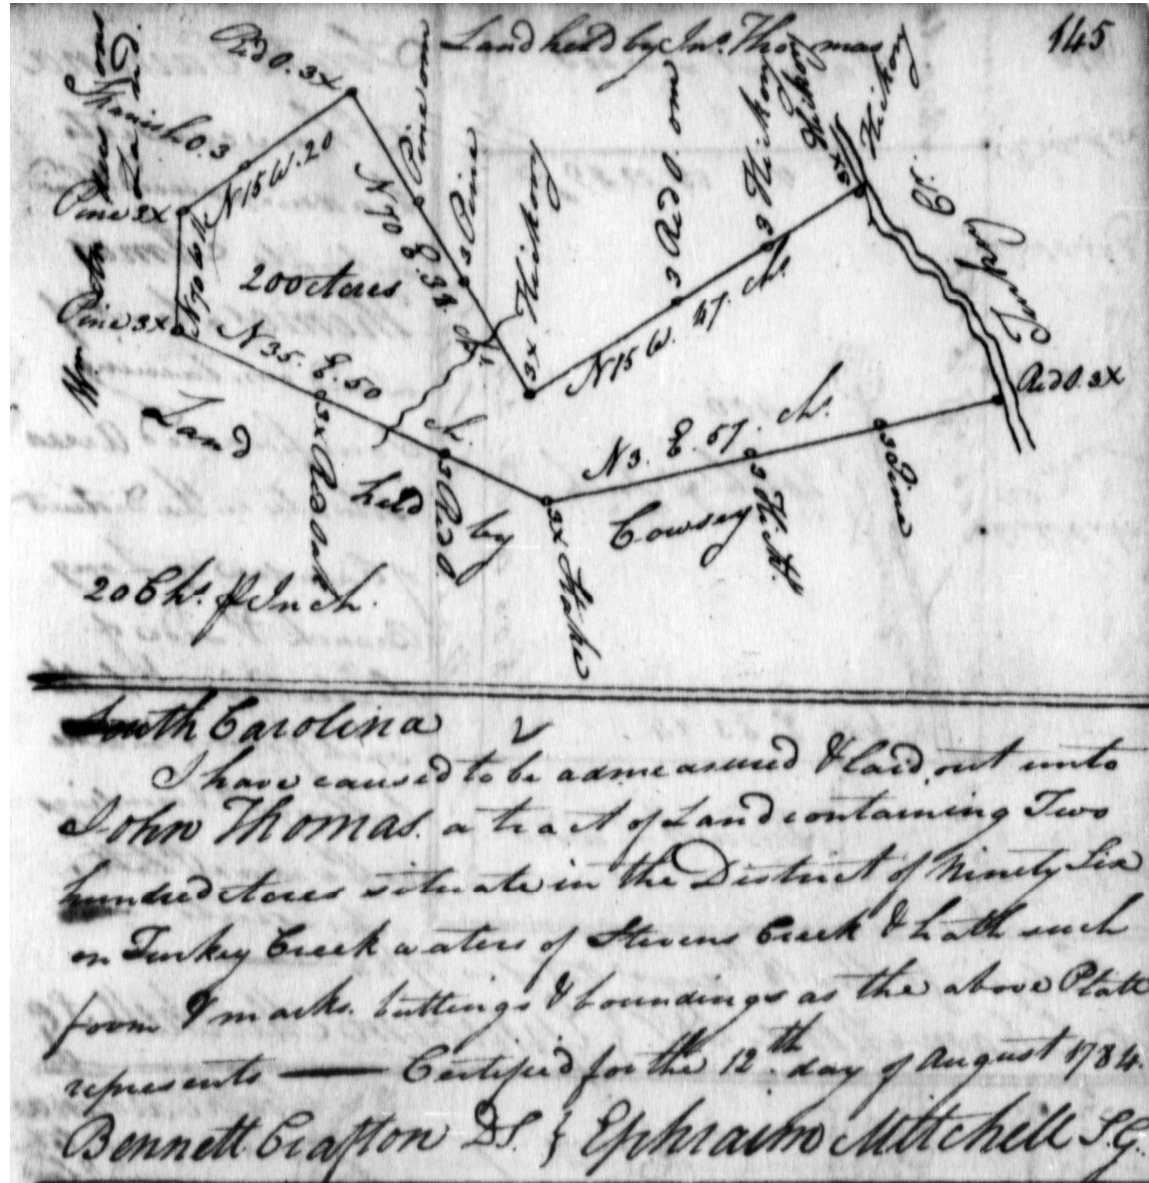 145
Land held by Jno. Thomas
Red O. 3X
Spanish O. 3
N15 W. 20
Pine 3X
Pine 3X
N70 W
200 Acres
N70 E. 34. Ch.
Pine om
3 Pine
3X Hickory
3 Red O. om
3 Hickory
Hickory
N15 W. 47. Ch.
Turkey Cr.
Red O. 3X
N35. E. 50
ch.
3X Red Oak
3 Red O
3X Stake
N3. E. 57. ch.
3 Pine
Land held by Cowsey
20 Chs. p Inch.
South Carolina
I have caused to be admeasured & laid out unto
John Thomas. a tract of Land containing Two
hundred Acres situate in the District of Ninety Six
on Turkey Creek waters of Stevens Creek & hath such
form & marks. buttings & boundings as the above Platt
represents — Certified for the 12th. day of August 1784.
Bennett Crafton DS. } Ephraim Mitchell S.G.